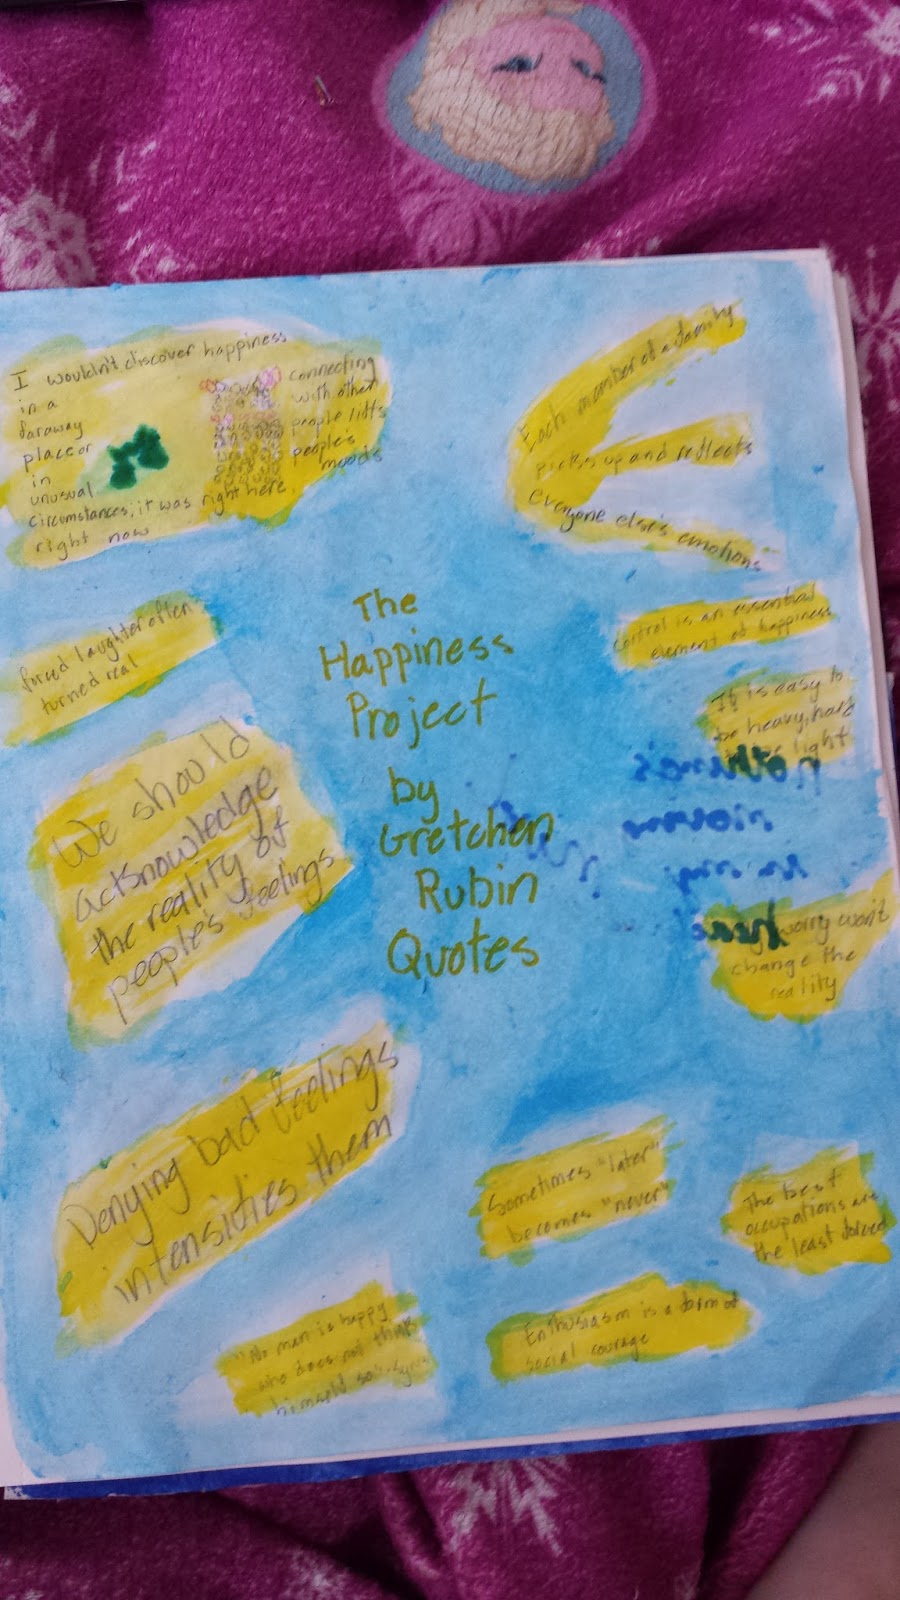 I wouldn't discover happiness
in a
faraway
place or
in
unusual
circumstances; it was right here,
right now
connecting
with other
people lifts
people's
moods
Each member of a family
picks up and reflects
everyone else's emotions
forced laughter often
turned real
The
Happiness
Project
by
Gretchen
Rubin
Quotes
control is an essential
element of happiness
It is easy to
be heavy, hard
light
We should
acknowledge
the reality of
people's feelings
worry won't
change the
reality
Denying bad feelings
intensifies them
Sometimes "later"
becomes "never"
The best
occupations are
the least forced
Enthusiasm is a form of
social courage
"No man is happy
who does not think
himself so"